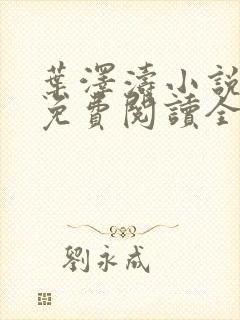 葉澤濤小說
免費閱讀全
劉永成